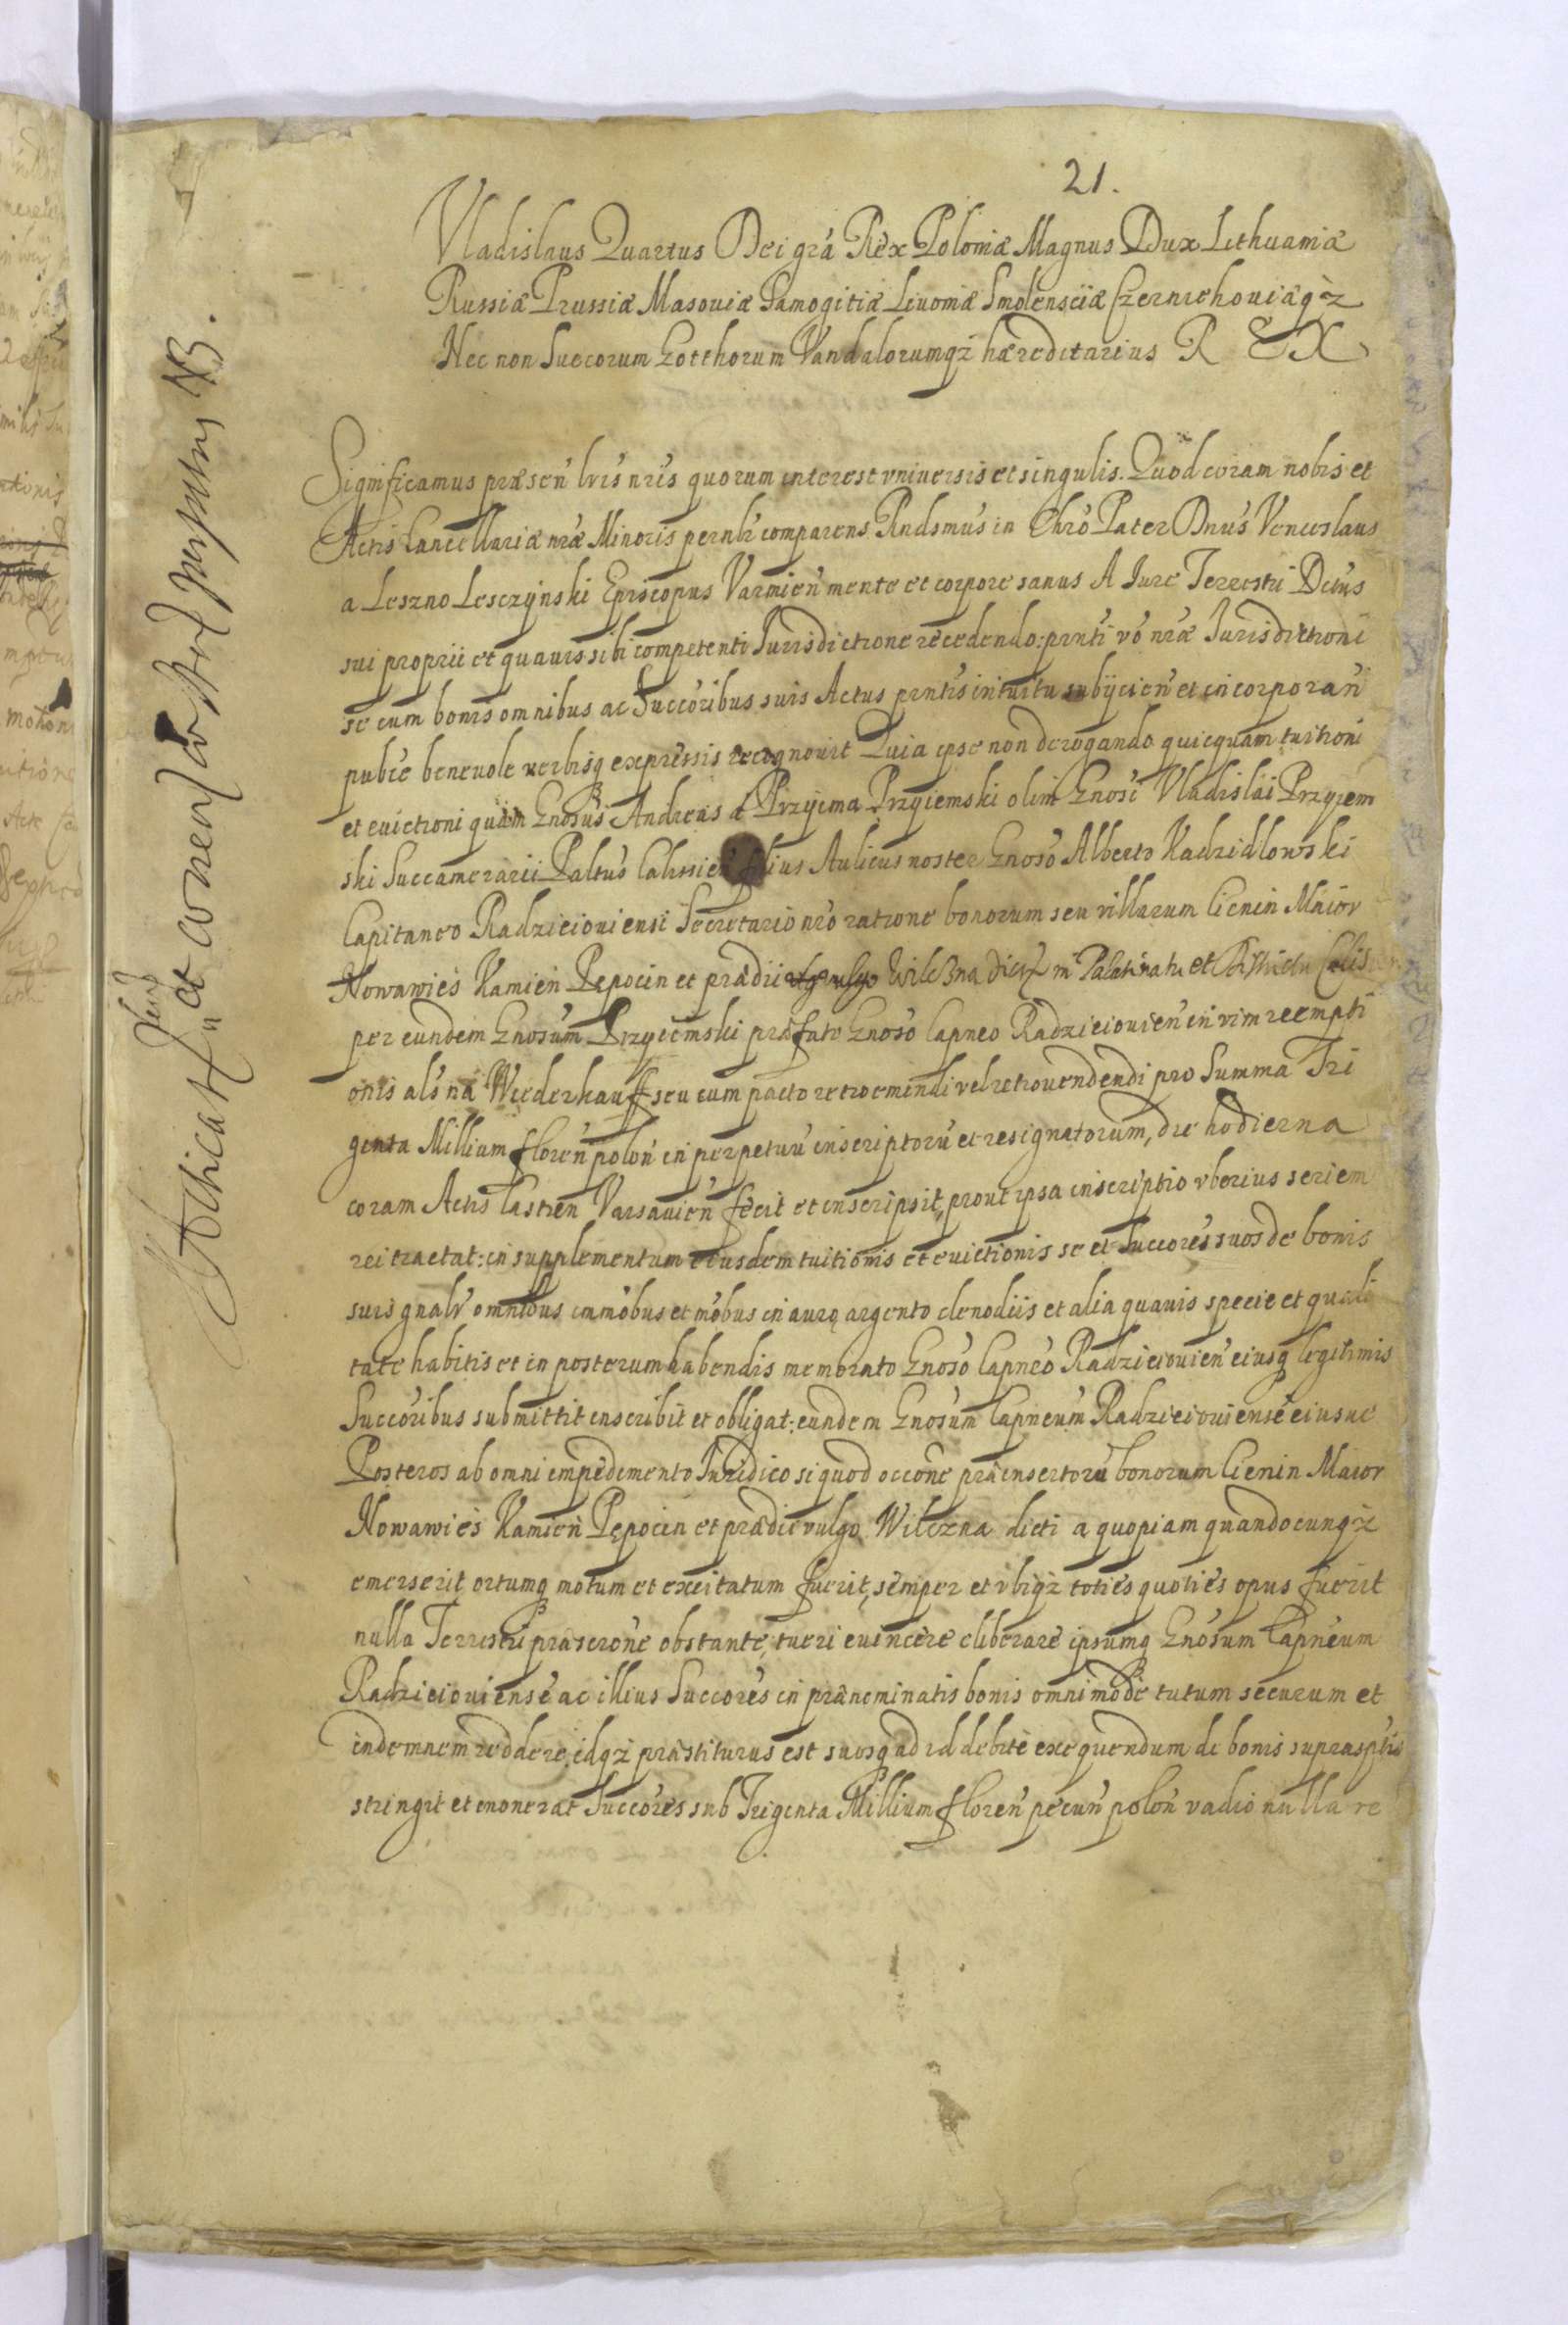 21.
Vladislaus Quartus Dei grã Rex Poloniæ Magnus Dux Lithuaniæ
Russiæ Prussiæ Masouiæ Samogitiæ Liuoniæ Smolensciæ Czerniehouiæq́z
Nec non Suecorum Gotthorum Vandalorumq́z hæreditarius R E X
Significamus præsen̄ lrīs nrīs quorum interest vniuersis et singulis. Quod coram nobis et
Actis Cancellariæ nr̄æ Minoris pernlr̄ comparens Rndsmus in Chrō Pater Dnūs Venceslaus
a Leszno Lesczynski Episcopus Varmien̄ mente et corpore sanus A Iure Terrestri Dctūs
sui proprii et quauis sibi competenti Iurisdictione recedendo: prnti vō nr̄æ Iurisdictioni
se cum bonis omnibus ac Succoribus suis Actus prntis intuitu subijcien̄ et incorporan̄
publce beneuole verbisq expressis recognouit Quia ipse non derogando quicquam tuitioni
et euictioni quam Gnosus Andreas a Przyima Przyiemski olim Gnosi Vladislai Przyiem
ski Succamerarii Paltus Calissien̄ filius Aulicus noster Gnoso Alberto Kadzidlowski
Capitaneo Radzieiouiensi Secretario nrō ratione bonorum seu villarum Cienin Maior
Nowawies Kamien̄ Pepocin et prædii Wilczna in Palatinatu et Districtu Calis
per eundem Gnosum Przyiemski præfato Gnoso Capneo Radzieiouien̄ in vim reempti
onis als na Wiederkauff seu cum pacto retroemendi vel retrouendendi pro Summa Tri
genta Millium floren̄ polon̄ in perpetuū inscriptorū et resignatorum, die hodierna
coram Actis Castren̄ Varsauien̄ fecit et inscripsit, prout ipsa inscriptio vberius seriem
rei tractat: in supplementum eiusdem tuitionis et euictionis se et Succores suos de bonis
suis gnalr̄ omnibus immobus et mobus in auro argento clenodiis et alia quauis specie et quali
tate habitis et in posterum habendis memorato Gnoso Capneo Radzieiouien̄ eiusq legitimis
Succoribus submittit inscribit et obligat: eundem Gnosum Capneum Radzieiouiensē eiusue
Posteros ab omni impedimento Iuridico si quod occone præinsertorū bonorum Cienin Maior
Nowawies Kamien̄ Pepocin et prædii vulgo Wilczna dicti a quopiam quandocunq́z
emerserit ortumq motum et excitatum fuerit, semper et vbiq́z toties quoties opus fuerit
nulla Terrestri præscrone obstante, tueri euincere eliberare ipsumq Gnosum Capneum
Radzieiouiensē ac illius Succores in prænominatis bonis omnimode tutum securum et
indemnem reddere, idq́z præstiturus est suosq ad id debite exequendum de bonis suprasptis
stringit et inonerat Succores sub Trigenta Millium floren̄ pecun̄ polon̄ vadio nulla re